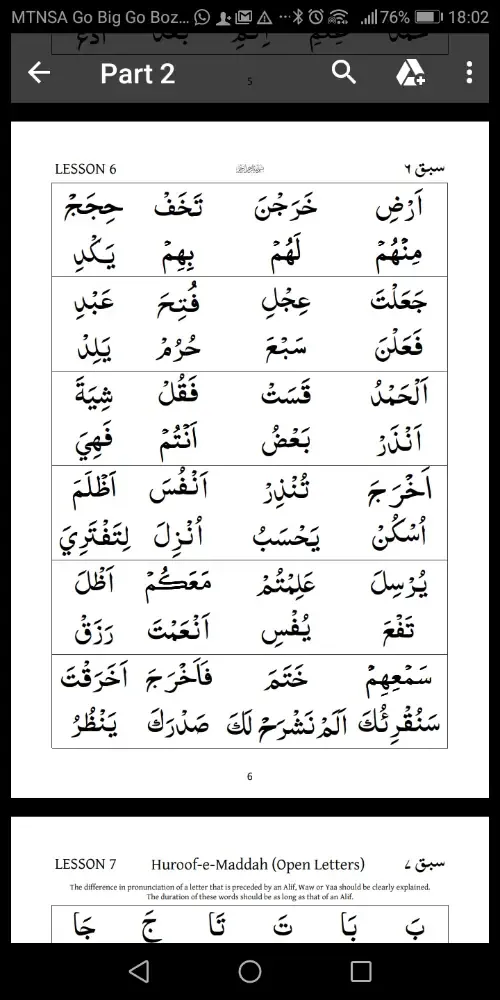 MTNSA Go Big Go Boz... 76% 18:02
Part 2
5
LESSON 6 سبق ٦
اَرْضِ خَرَجْنَ تَخَفْ حِجَجْ
مِنْهُمْ لَهُمْ بِهِمْ يَكْدِ
جَعَلْتَ عِجْلِ فُتِحَ عَبْدِ
فَعَلْنَ سَبْعَ حُرُمْ يَلِدْ
اَلْحَمْدُ قَسَتْ فَقُلْ شِيَةَ
اَنْذَرْ بَعْضُ اَنْتُمْ فَهِيَ
اَخْرَجَ تُنْذِرْ اَنْفُسَ اَظْلَمَ
اُسْكُنْ يَحْسَبُ اُنْزِلَ لِتَفْتَرِيَ
يُرْسِلَ عَلِمْتُمْ مَعَكُمْ اَظْلَ
تَفْعَ يُفْسِ اَنْعَمْتَ رَزَقْ
سَمْعِهِمْ خَتَمَ فَاَخْرَجَ اَخَرَقْتَ
سَنُقْرِئُكَ اَلَمْ نَشْرَحْ لَكَ صَدْرَكَ يَنْظُرُ
6
LESSON 7 Huroof-e-Maddah (Open Letters) سبق ٧
The difference in pronunciation of a letter that is preceded by an Alif, Waw or Yaa should be clearly explained.
The duration of these words should be as long as that of an Alif.
بَ بَا تَ تَا جَ جَا